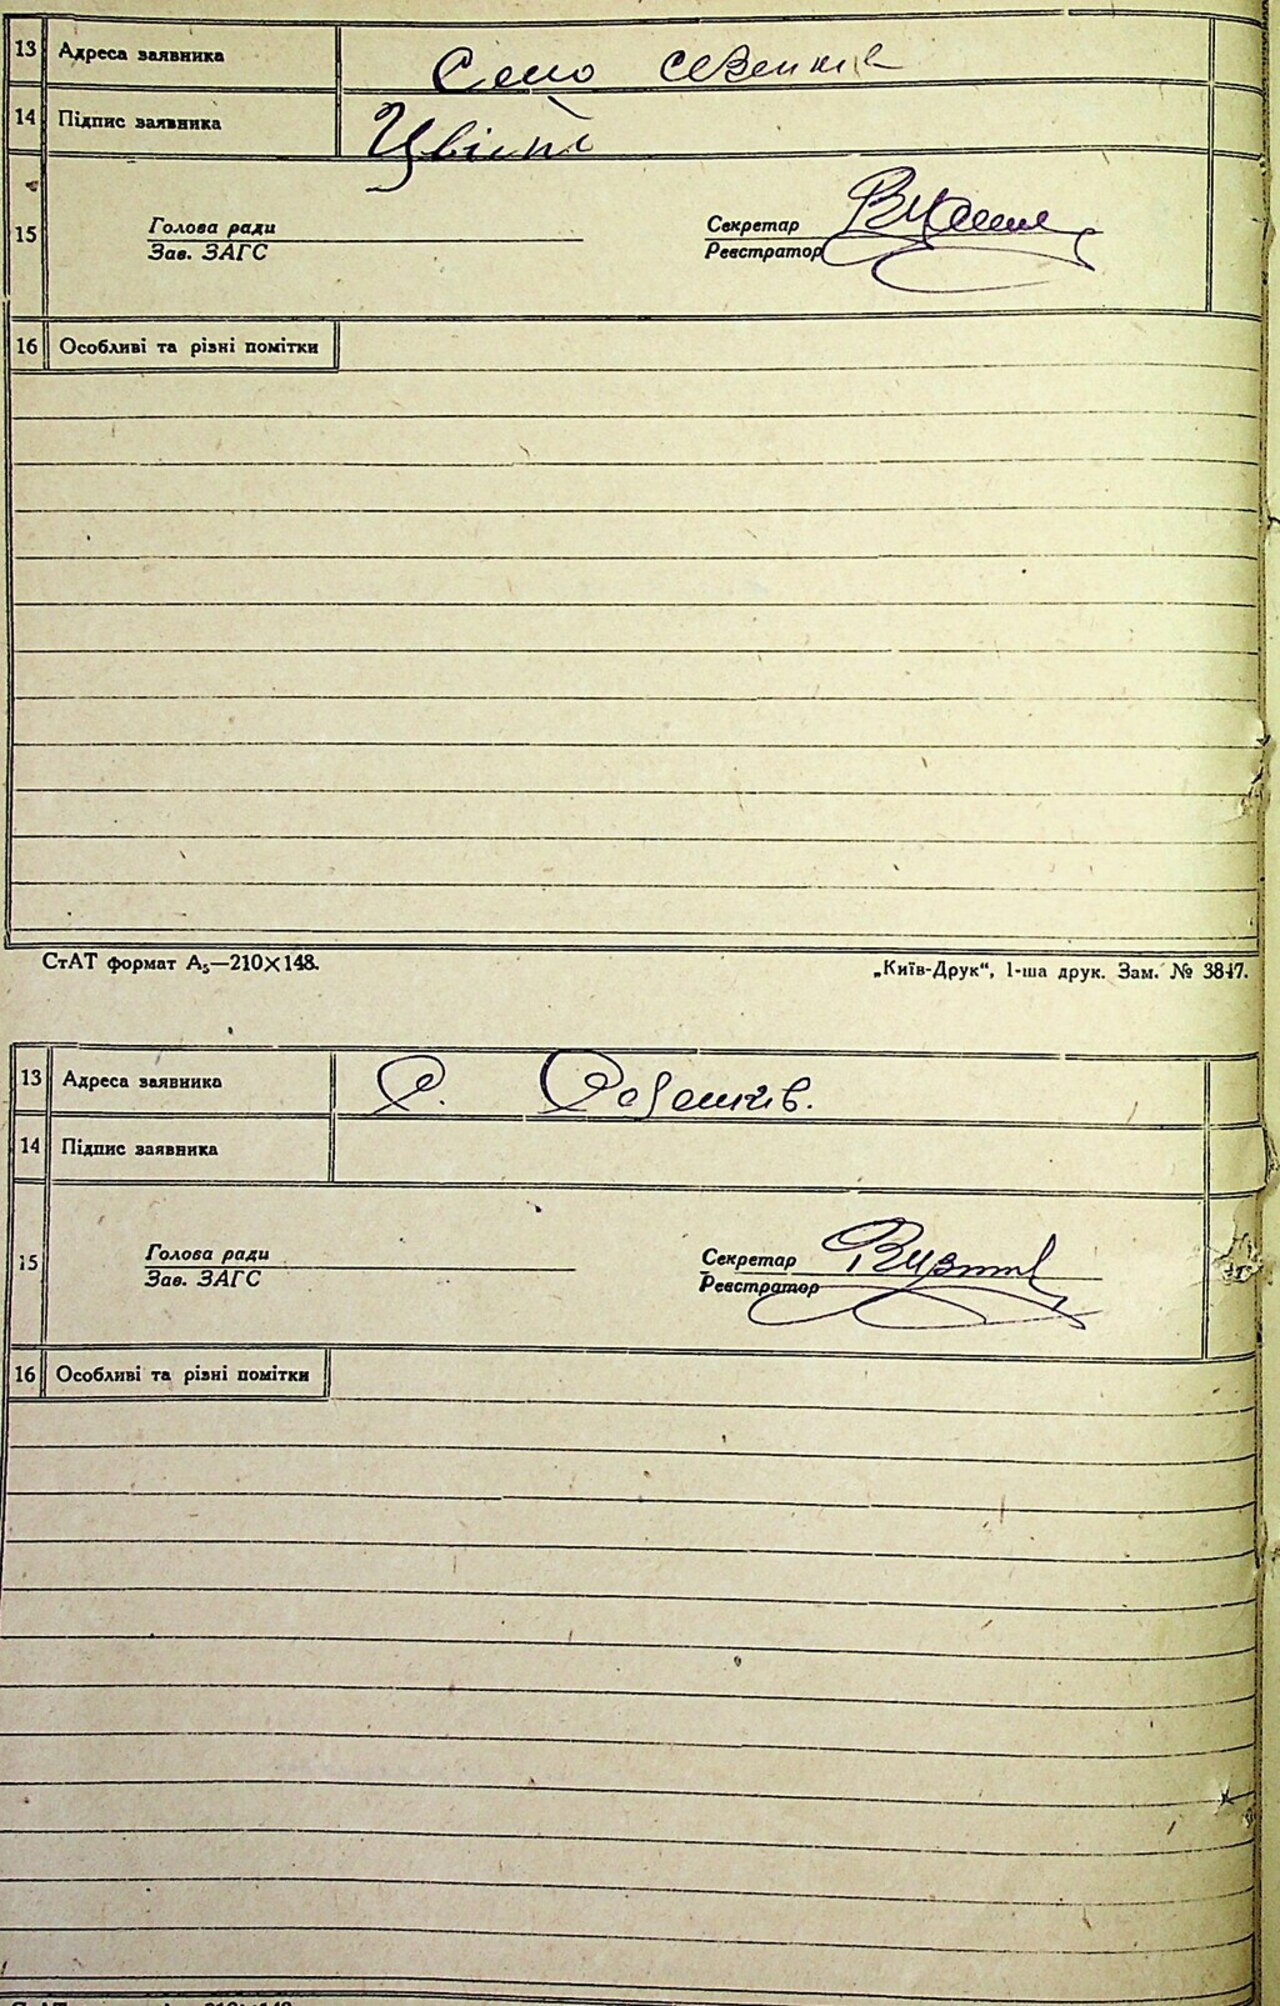 13 Адреса заявника Село Севенків
14 Підпис заявника Цвіт
15 Голова ради Секретар
Зав. ЗАГС Реєстратор
16 Особливі та різні помітки
СтАТ формат А₅—210×148. „Київ-Друк“, 1-ша друк. Зам. № 3847.
13 Адреса заявника С.
14 Підпис заявника
15 Голова ради Секретар
Зав. ЗАГС Реєстратор
16 Особливі та різні помітки